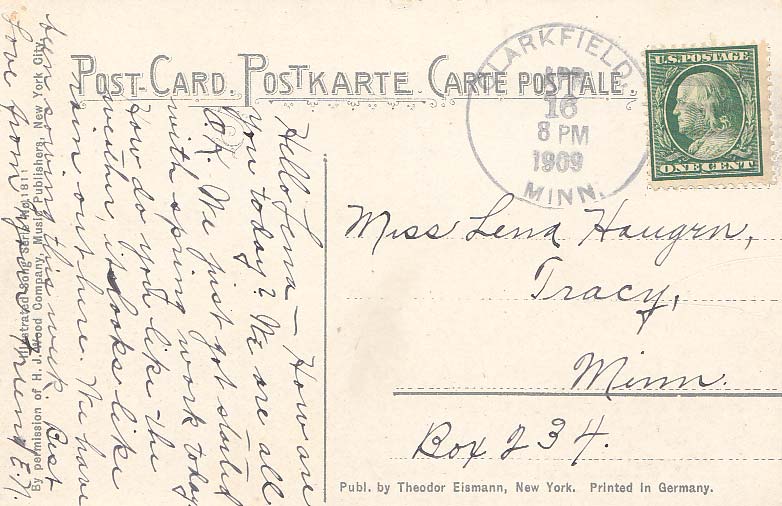 POST-CARD. POSTKARTE. CARTE POSTALE.
CLARKFIELD
APR
16
8 PM
1909
MINN.
U.S. POSTAGE
ONE CENT
Hello Lena - How are
you today? We are all
OK. We just got started
with spring work today.
How do you like the
weather, it looks like
rain out here. We have
been sowing this week. Best
Love from your Friend E.N.
Miss Lena Haugrn,
Tracy,
Minn.
Box 234.
Illustrated Song Serie No. 1811
By permission of H. J. Wood Company, Music Publishers, New York City.
Publ. by Theodor Eismann, New York. Printed in Germany.